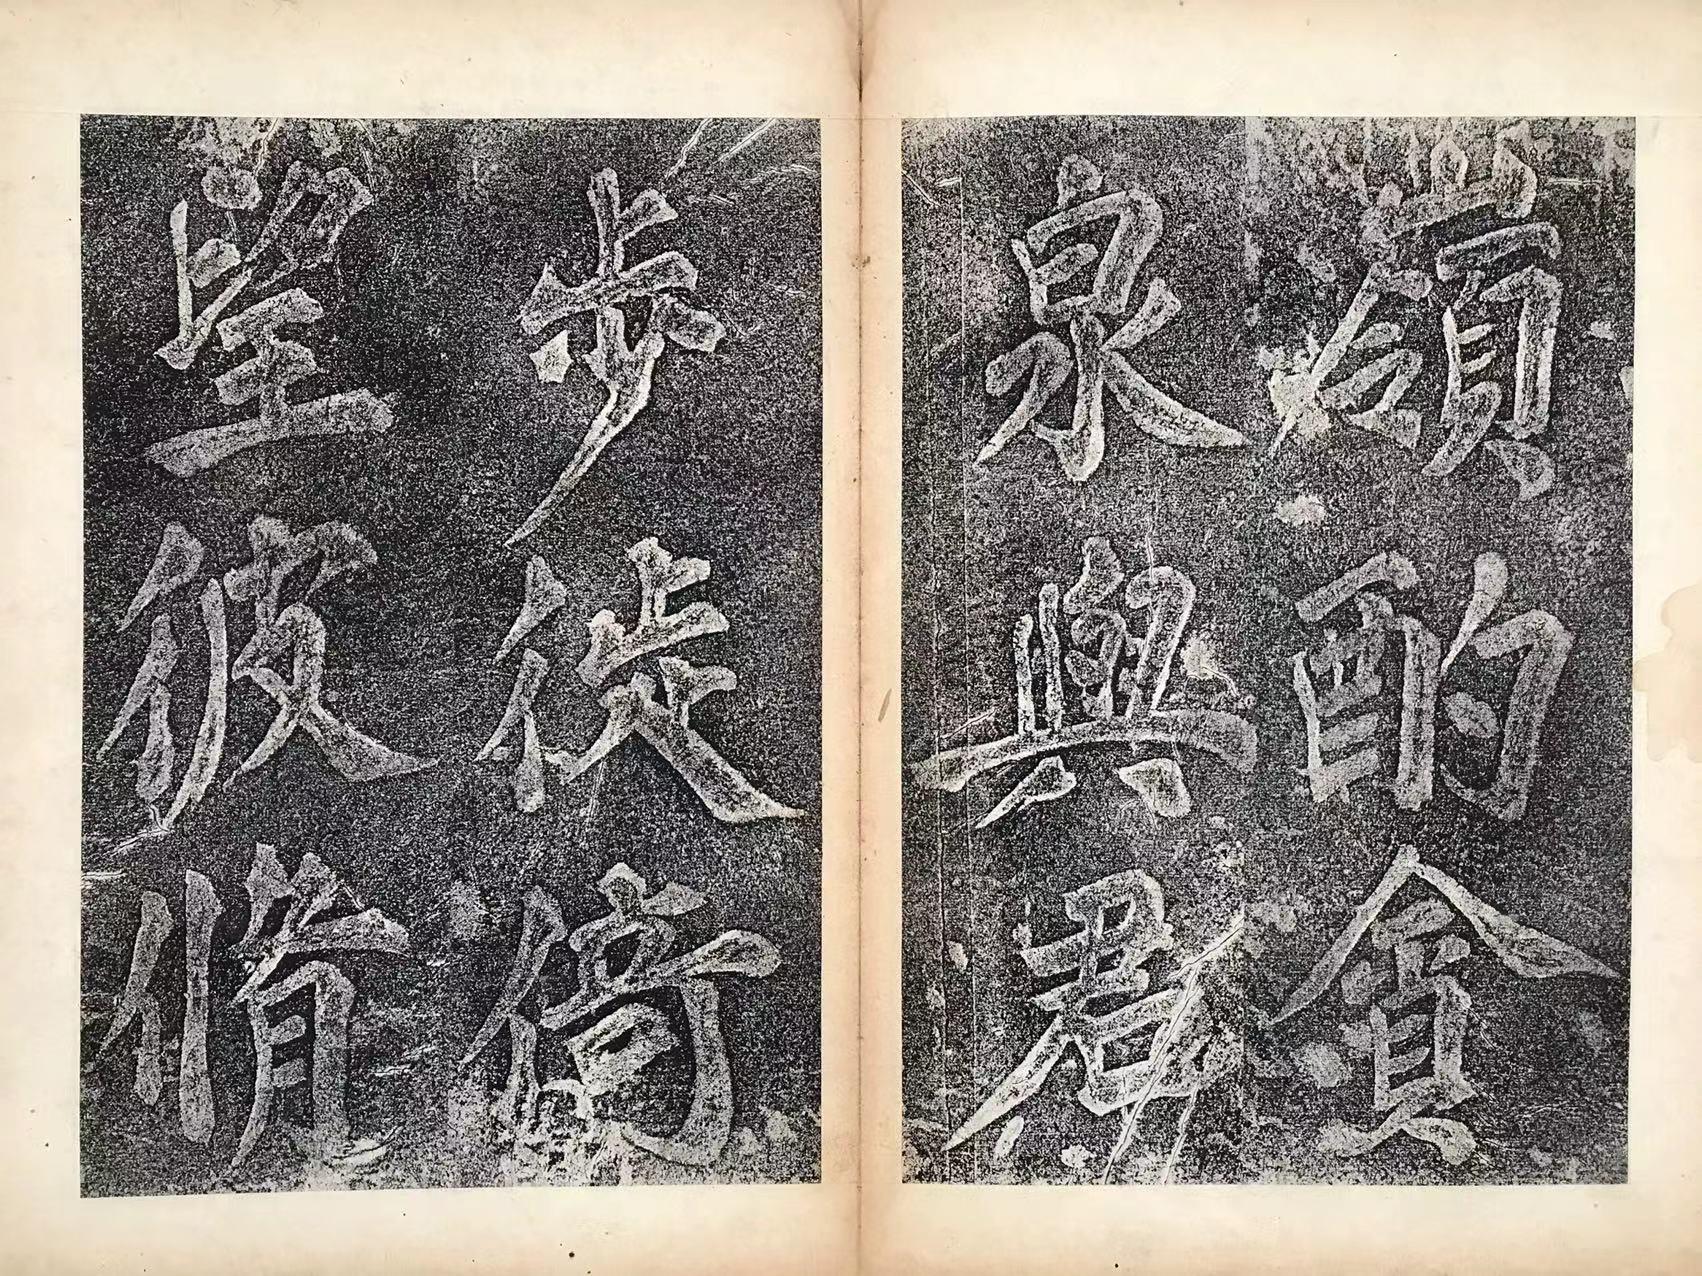 嶺酌貪
泉與君
步徙倚
望彼脩